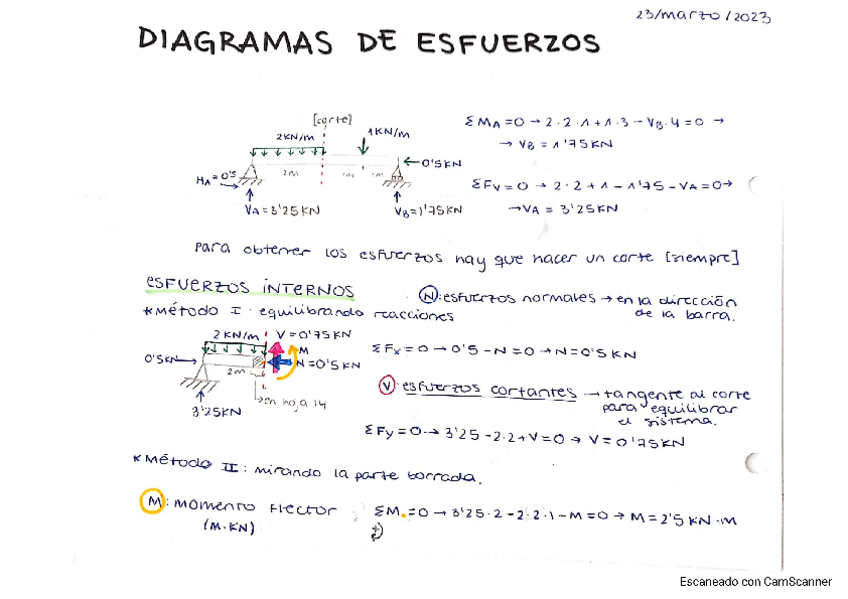 23/marzo/2023
DIAGRAMAS DE ESFUERZOS
[corte]
2KN/m
1KN/m
0'5KN
HA=0'5
2m
1m
1m
VA=3'25KN
VB=1'75KN
ΣMA=0→2·2·1+1·3-VB·4=0→
→VB=1'75KN
ΣFV=0→2·2+1-1'75-VA=0→
→VA=3'25KN
Para obtener los esfuerzos hay que hacer un corte [siempre]
ESFUERZOS INTERNOS
*Método I: equilibrando reacciones
N: esfuerzos normales → en la dirección
de la barra.
2KN/m
V=0'75KN
M
0'5KN
N=0'5KN
2m
en hoja 14
3'25KN
ΣFx=0→0'5-N=0→N=0'5KN
V: esfuerzos cortantes → tangente al corte
para equilibrar
el sistema.
ΣFy=0→3'25-2·2+V=0→V=0'75KN
*Método II: mirando la parte borrada.
M: Momento Flector
(M·KN)
ΣM=0→3'25·2-2·2·1-M=0→M=2'5KN·M
Escaneado con CamScanner